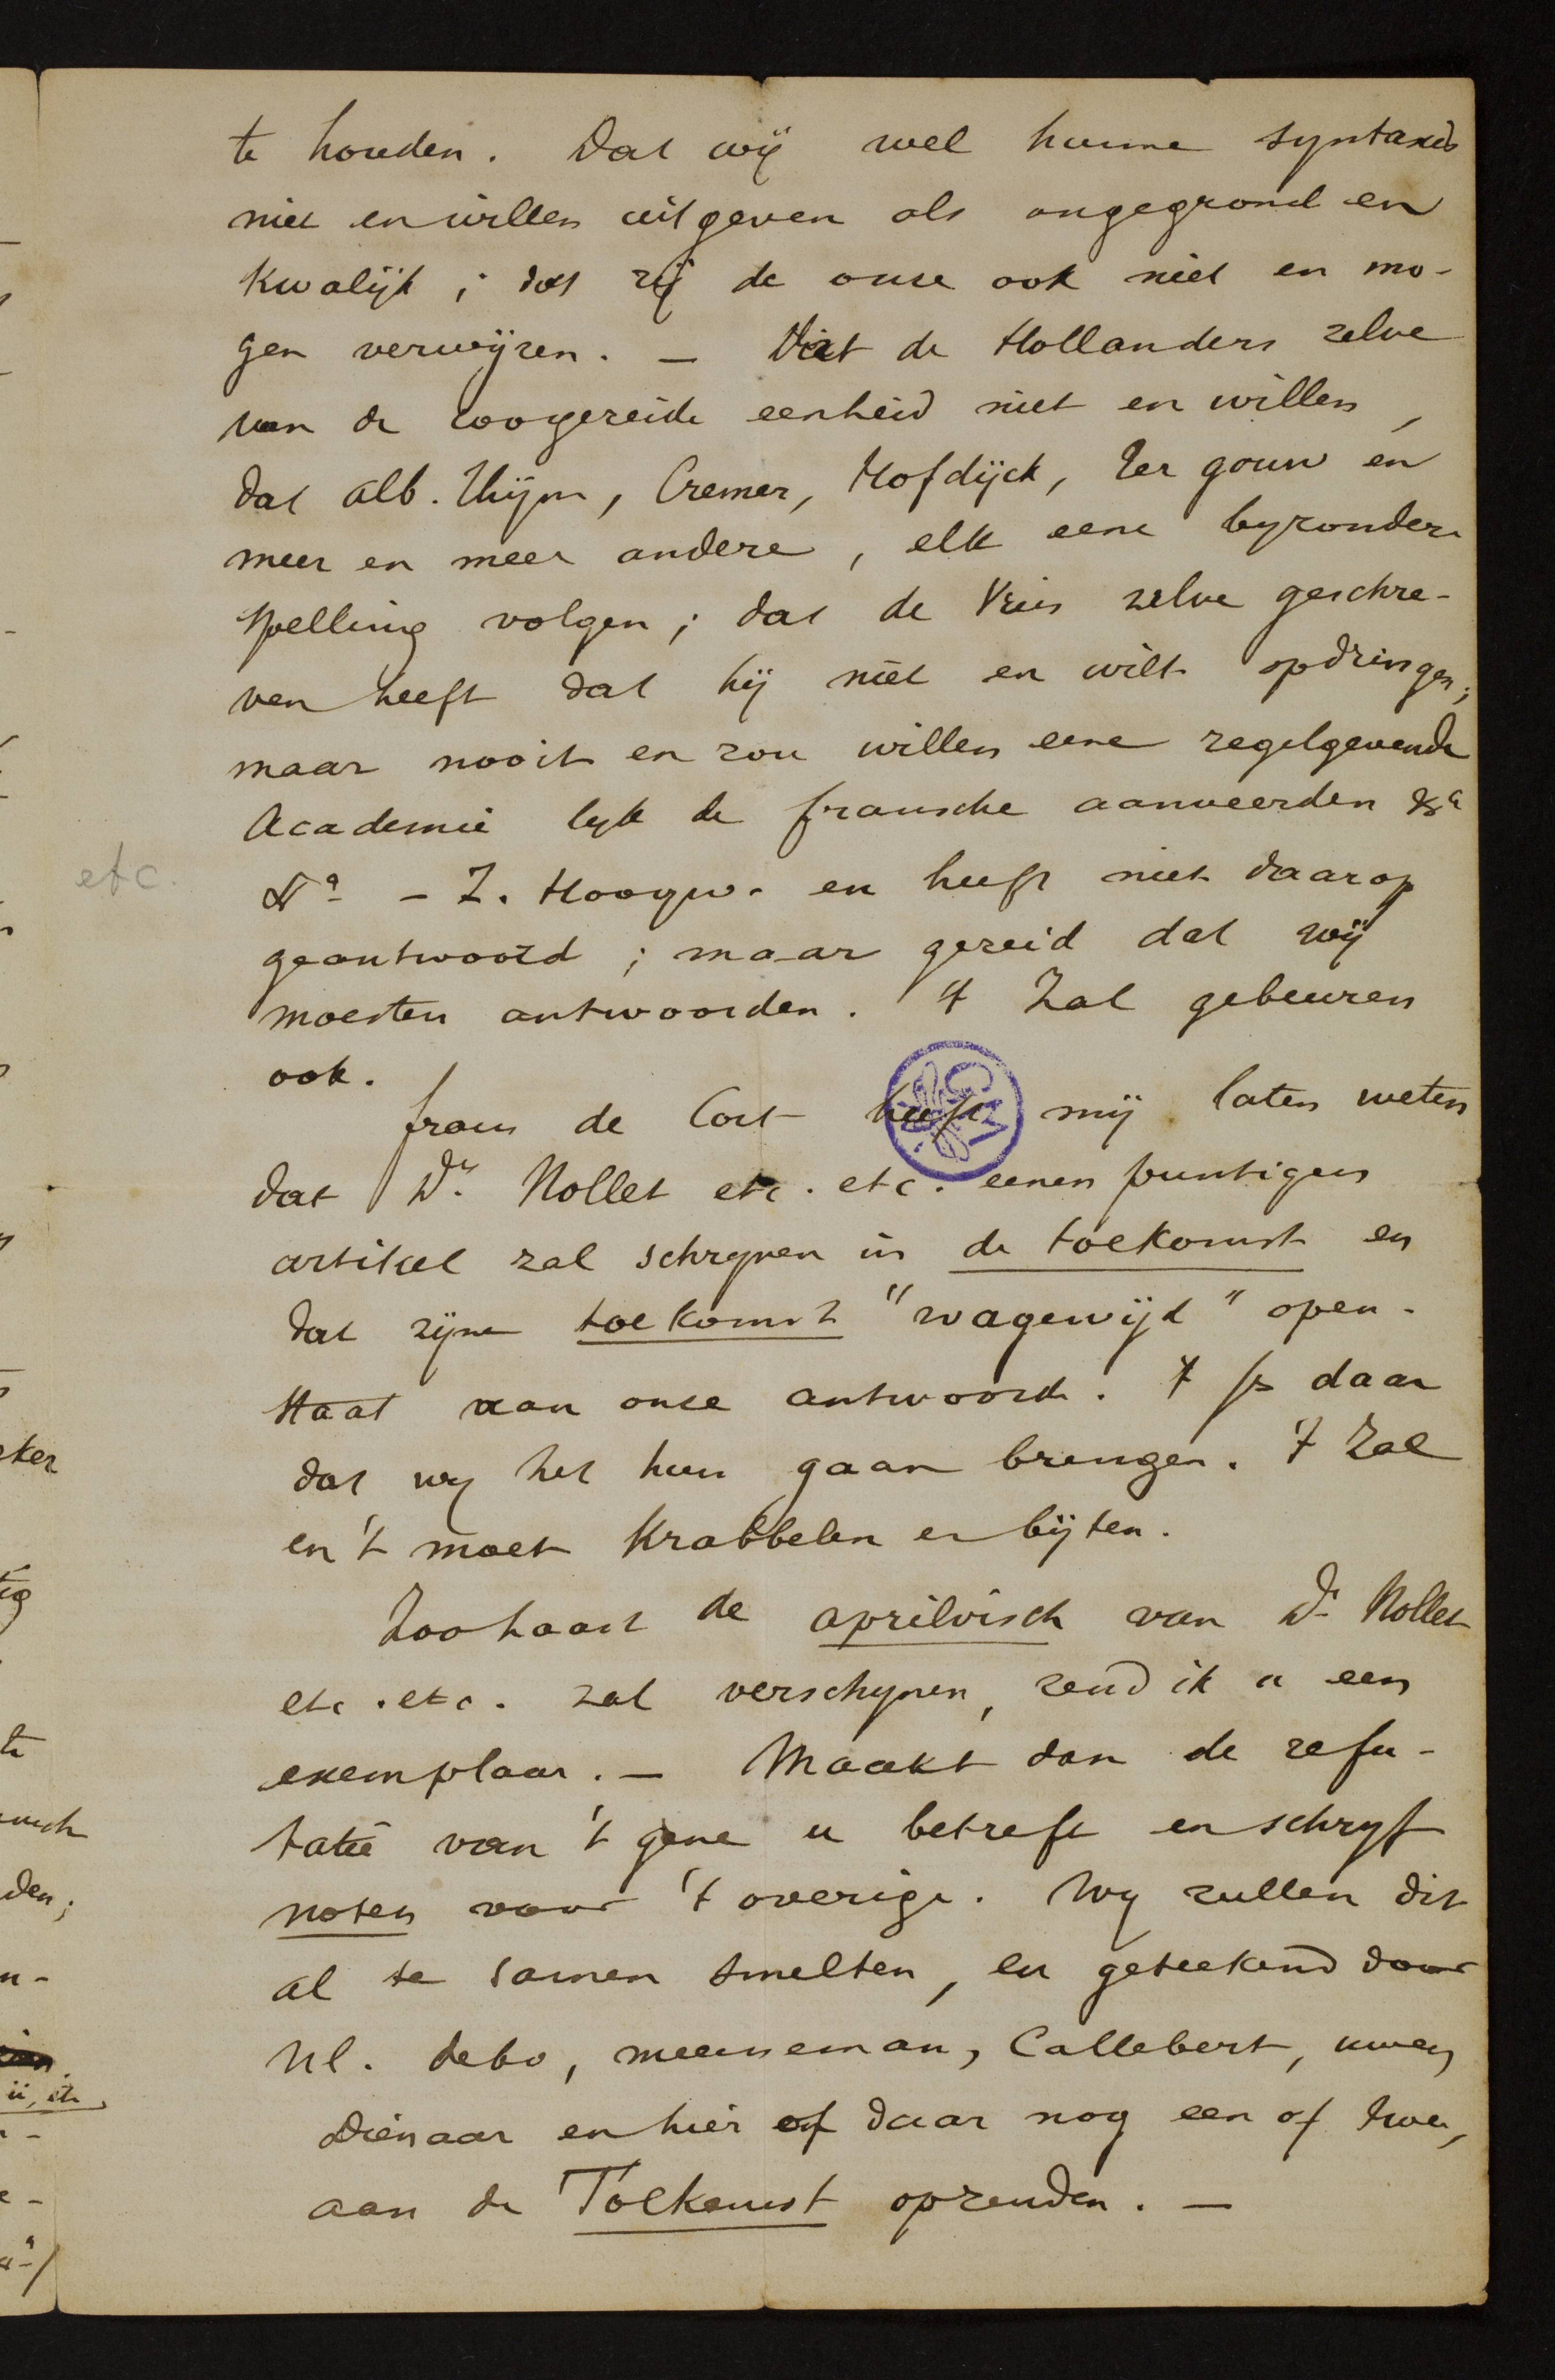 te houden. Dat wij wel hunne syntaxis
niet en willen uitgeven als ongegrond en
kwalijk; dat zij de onze ook niet en mo-
gen verwijzen. — Dat de Hollanders zelve
van de zoogezeide eenheid niet en willen,
dat Alb. Thijm, Cremer, Hofdijck, Ter gouw en
meer en meer andere, elk eene byzondere
spelling volgen; dat de Vries zelve geschre-
ven heeft dat hij niet en wilt opdringen;
maar nooit en zou willen eene regelgevende
Academie lyk de fransche aanveerden &a
etc.
&a - Z. Hoogw. en heeft niet daarop
geantwoord; maar gezeid dat wij
moesten antwoorden. 't Zal gebeuren
ook.
frans de Cort heeft mij laten weten
dat Dr. Nollet etc. etc. eenen puntigen
artikel zal schryven in de toekomst en
dat zijne toekomst "wagewijd" open-
staat aan onze antwoorde. 't Is daar
dat wy het hun gaan brengen. 't Zal
en 't moet krabbelen en bijten.
Zoohaast de aprilvisch van Dr Nollet
etc. etc. zal verschynen, zend ik u een
exemplaar. — Maakt dan de refu-
tatie van 't gene u betreft en schryf
noten voor 't overige. Wy zullen dit
al te samen smelten, en geteekend door
Ul. debo, meersseman, Callebert, uwen
Dienaar en hier of daar nog een of twee,
aan de Toekomst opzenden. —